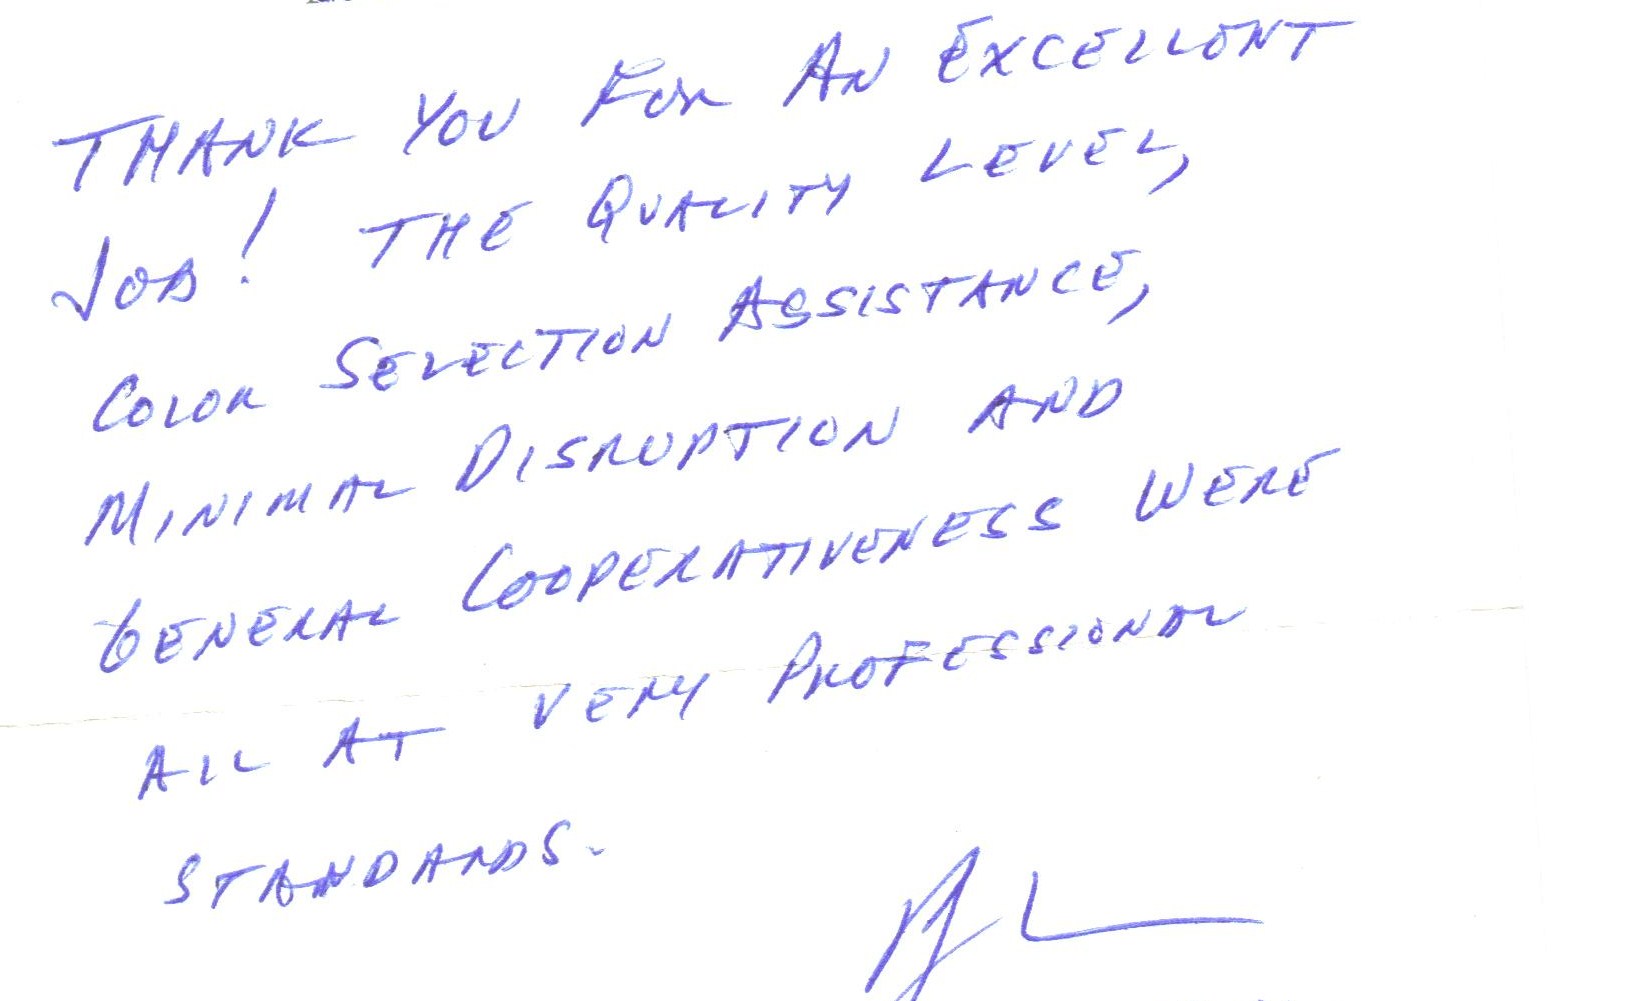 THANK YOU FOR AN EXCELLENT
JOB! THE QUALITY LEVEL,
COLOR SELECTION ASSISTANCE,
MINIMAL DISRUPTION AND
GENERAL COOPERATIVENESS WERE
ALL AT VERY PROFESSIONAL
STANDARDS.